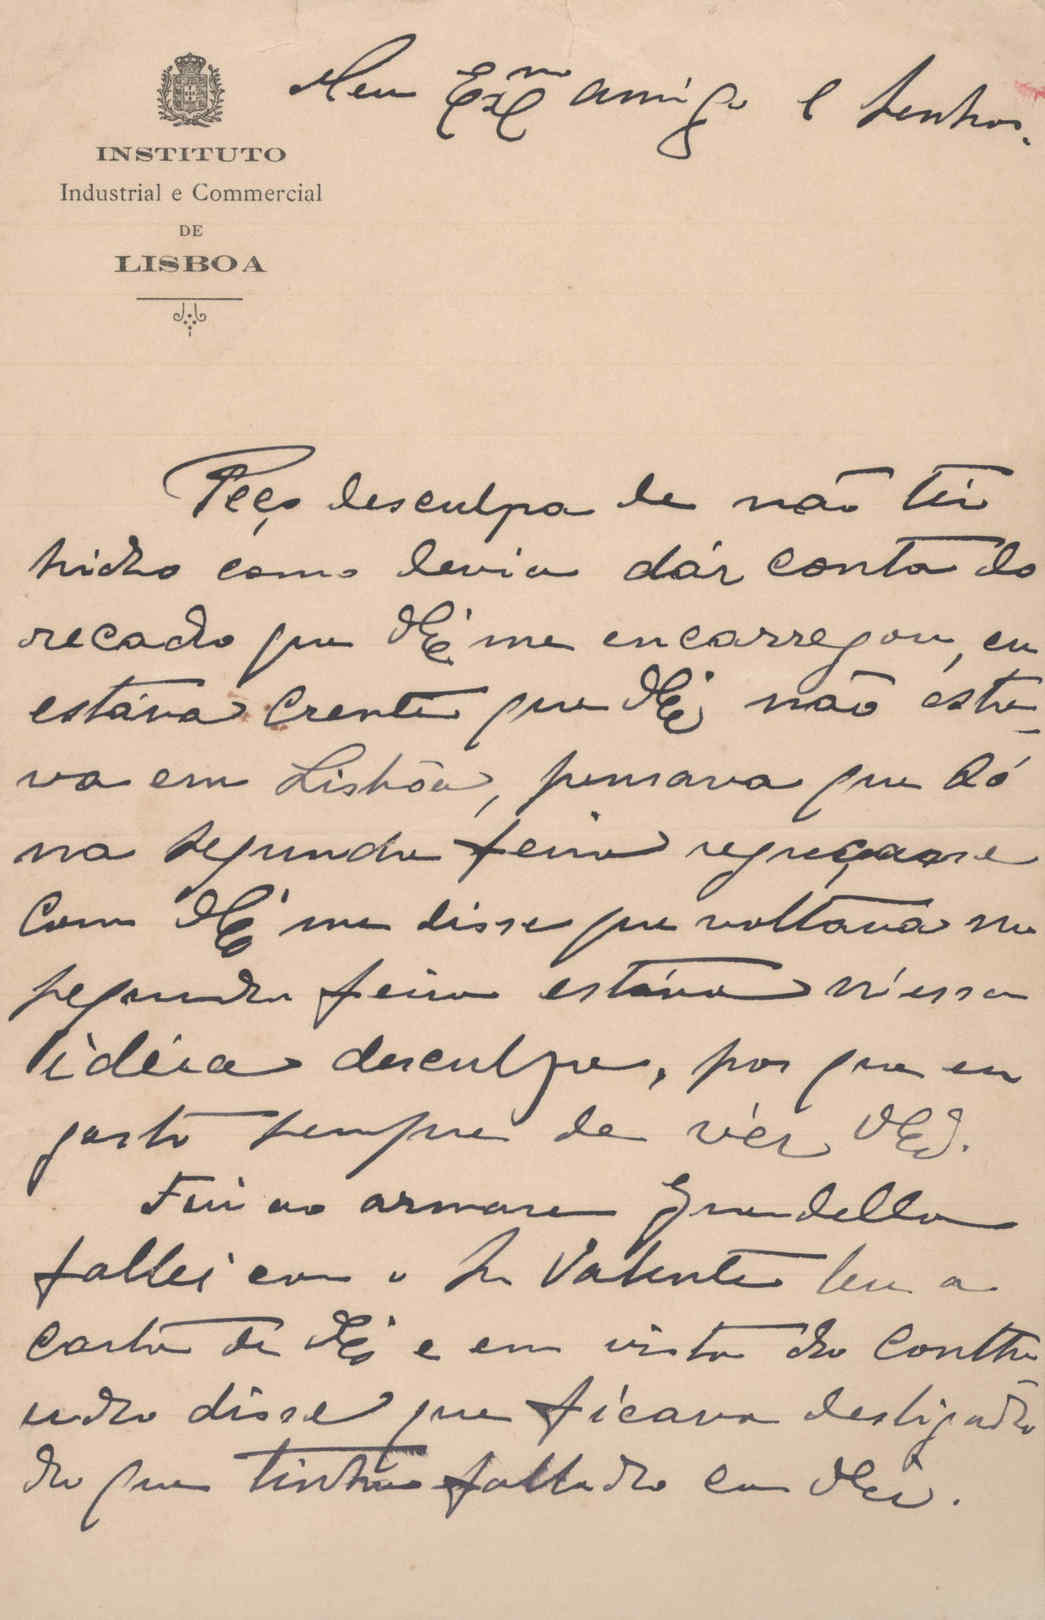 INSTITUTO
Industrial e Commercial
DE
LISBOA
Meu Exmo amigo e Senhor.
Peço desculpa de não ter
hido como devia dár conta do
recado que VExª me encarregou, eu
estáva crente que VExª não este-
va em Lisbôa, pensava que só
na segunda feira regreçasse
Com VExª me disse que voltava na
segunda feira estáva n'essa
idéia desculpe, por que eu
gosto sempre de vêr VExª.
Fui ao armazem Grandella
fallei com o Sr Valente leu a
carta de VExª e em vista do Conthe-
udo disse que ficava desligado
do que tinha fallado com VExª.